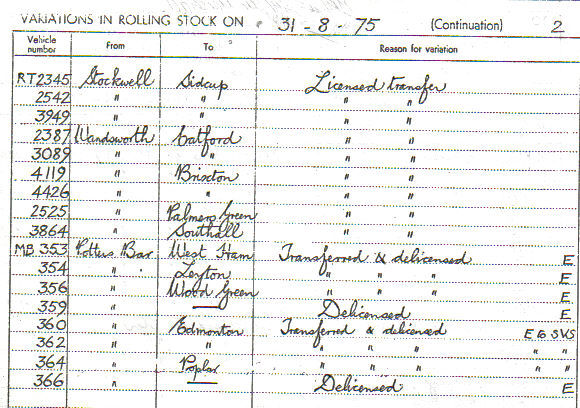 VARIATIONS IN ROLLING STOCK ON 31 - 8 - 75 (Continuation) 2
Vehicle number From To Reason for variation
RT2345 Stockwell Sidcup Licensed transfer
2542 " " " "
3949 " " " "
2387 Wandsworth Catford " "
3089 " " " "
4119 " Brixton " "
4426 " " " "
2525 " Palmers Green " "
3864 " Southall " "
MB 353 Potters Bar West Ham Transferred & delicensed E
354 " Leyton " " " E
356 " Wood Green " " " E
359 " — Delicensed E
360 " Edmonton Transferred & delicensed E to SVS
362 " " " " " " "
364 " Poplar " " " " "
366 " — Delicensed E